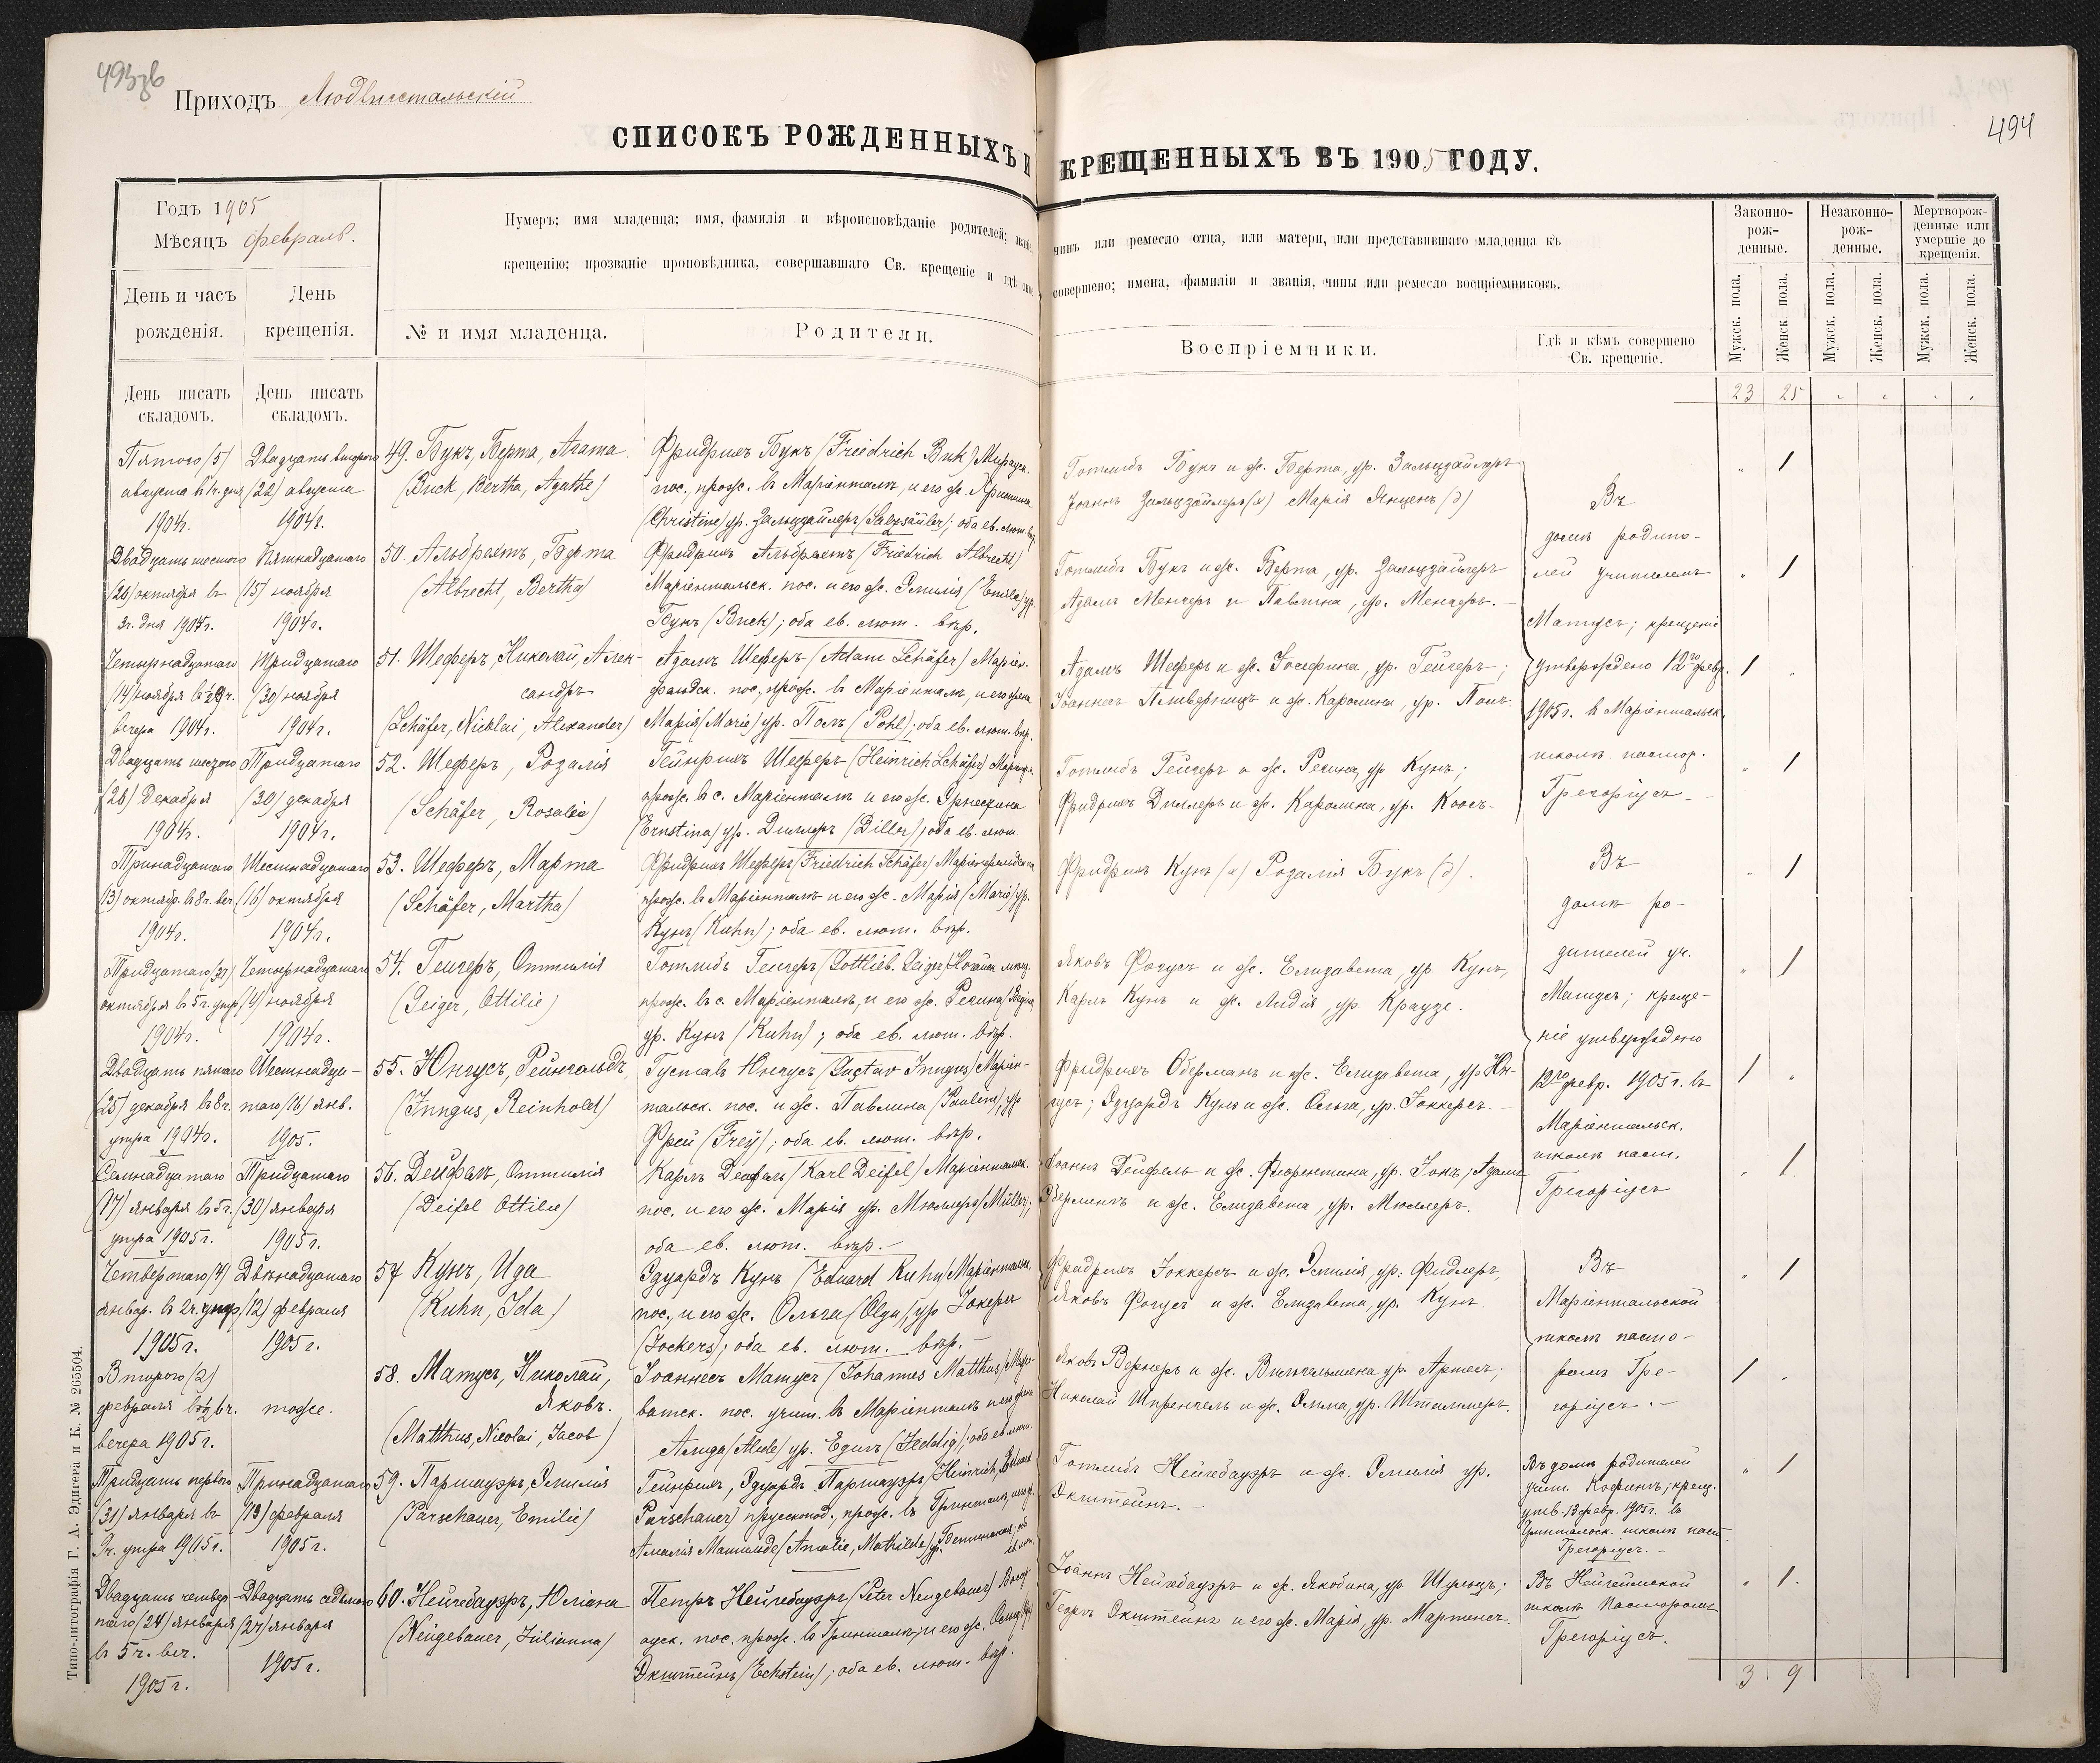 493об
494
Приходъ Людвигстальскій
СПИСОКЪ РОЖДЕННЫХЪ И КРЕЩЕННЫХЪ ВЪ 1905 ГОДУ.
Годъ 1905
Мѣсяцъ февраль.
Нумеръ; имя младенца; имя, фамилія и вѣроисповѣданіе родителей; званіе, чинъ или ремесло отца, или матери, или представившаго младенца къ
крещенію; прозваніе проповѣдника, совершавшаго Св. крещеніе и гдѣ оное совершено; имена, фамиліи и званія, чины или ремесло воспріемниковъ.
День и часъ рожденія.
День крещенія.
№ и имя младенца.
Родители.
Воспріемники.
Гдѣ и кѣмъ совершено Св. крещеніе.
Законно-рож-денные.
Незаконно-рож-денные.
Мертворож-денные или умершіе до крещенія.
Мужск. пола. Женск. пола. Мужск. пола. Женск. пола. Мужск. пола. Женск. пола.
День писать складомъ.
День писать складомъ.
23 25
Пятого (5)
августа в 1 ч. дня
1904г.
Двадцать второго
(22) августа
1904г.
49. Букъ, Берта, Агата
(Buck, Bertha, Agathe)
Фридрихъ Букъ (Friedrich Buck)
пос., прож. въ Маріенталѣ, и его ж. Христина
(Christine) ур. Зальцзайлеръ (Salzsäuler); оба ев. лют. вѣр.
Готлибъ Букъ и ж. Берта, ур. Зальцзайлеръ
Іоаннъ Зальцзайлеръ (х) Марія Янценъ (д)
1
Двадцать шестого
(26) октября въ
3 ч. дня 1904г.
Пятнадцатаго
(15) ноября
1904г.
50. Альбрехтъ, Берта
(Albrecht, Bertha)
Фридрихъ Альбрехтъ (Friedrich Albrecht)
Маріентальск. пос. и его ж. Эмилія (Emilie) ур.
Букъ (Buck); оба ев. лют. вѣр.
Готлибъ Букъ и ж. Берта, ур. Зальцзайлеръ
Адамъ Менгеръ и Павлина, ур. Менгеръ.
1
Въ
домѣ родите-
лей учителемъ
Матусъ; крещеніе
утверждено 12го февр.
1905г. въ Маріентальск.
школѣ пастор.
Грегоріусъ
Четырнадцатаго
(14) ноября
вечера 1904г.
Тридцатаго
(30) ноября
1904г.
51. Шеферъ, Николай, Алек-
сандръ
(Schäfer, Nicolai, Alexander)
Адамъ Шеферъ (Adam Schäfer) Маріен-
фельдск. пос., прож. въ Маріенталѣ, и его жена
Марія (Marie) ур. Полъ (Pohl); оба ев. лют. вѣр.
Адамъ Шеферъ и ж. Іосефина, ур. Гейгеръ;
и ж. Каролина, ур. Полъ.
1
Двадцать шестого
(26) декабря
1904г.
Тридцатаго
(30) декабря
1904г.
52. Шеферъ, Розалія
(Schäfer, Rosalie)
Гейнрихъ Шеферъ (Heinrich Schäfer)
прож. въ с. Маріенталѣ и его ж. Эрнестина
(Ernstina) ур. Диллеръ (Diller); оба ев. лют.
Готлибъ Гейгеръ и ж. Регина, ур. Кунъ;
Фридрихъ Диллеръ и ж. Каролина, ур. Коосъ
1
Тринадцатаго
(13) октябр. в 8 ч. веч.
1904г.
Шестнадцатаго
(16) октября
1904г.
53. Шеферъ, Марта
(Schäfer, Martha)
Фридрихъ Шеферъ (Friedrich Schäfer) Маріенфельдск.
прож. въ Маріенталѣ и его ж. Марія (Marie) ур.
Кунъ (Kuhn); оба ев. лют. вѣр.
Фридрихъ Кунъ (х) Розалія Букъ (д).
1
Въ
домѣ ро-
дителей уч.
Матусъ; креще-
ніе утверждено
12го февр. 1905г. въ
Маріентальск.
школѣ паст.
Грегоріусъ
Тридцатаго (30)
октября в 5 ч. утра
1904г.
Четырнадцатаго
(14) ноября
1904г.
54. Гейгеръ, Оттилія
(Geiger, Ottilie)
Готлибъ Гейгеръ (Gottlieb Geiger)
прож. въ с. Маріенталѣ, и его ж. Регина (Regina)
ур. Кунъ (Kuhn); оба ев. лют. вѣр.
Яковъ Фогусъ и ж. Елизавета, ур. Кунъ,
Карлъ Кунъ и ж. Лидія, ур. Краузе.
1
Двадцать пятаго
(25) декабря в 8 ч.
утра 1904г.
Шестнадца-
таго (16) янв.
1905.
55. Юнгусъ, Рейнгольдъ,
(Jungus, Reinhold)
Густавъ Юнгусъ (Gustav Jungus) Маріен-
тальск. пос. и ж. Павлина (Pauline), ур.
Фрей (Frey); оба ев. лют. вѣр.
Фридрихъ Оберманъ и ж. Елизавета, ур. Юн-
гусъ; Эдуардъ Кунъ и ж. Ольга, ур. Іоккерсъ.
1
Семнадцатаго
(17) января в 5 ч.
утра 1905г.
Тридцатаго
(30) января
1905г.
56. Дейфель, Оттилія
(Deifel Ottilie)
Карлъ Дейфель (Karl Deifel) Маріентальск.
пос. и его ж. Марія ур. Мюллеръ (Müller);
оба ев. лют. вѣр.
Іоаннъ Дейфель и ж. Флорентина, ур. Іонъ; Адамъ
и ж. Елизавета, ур. Мюллеръ.
1
Четвертаго (4)
январ. в 2 ч. утра
1905г.
Двѣнадцатаго
(12) февраля
1905г.
57 Кунъ, Ида
(Kuhn, Ida)
Эдуардъ Кунъ (Eduard Kuhn) Маріентальск.
пос., и его ж. Ольга (Olga), ур. Іокерсъ
(Jockers); оба ев. лют. вѣр.
Фридрихъ Іоккерсъ и ж. Эмилія, ур. Фидлеръ,
Яковъ Фогусъ и ж. Елизавета, ур. Кунъ.
Въ
Маріентальской
школѣ пасто-
ромъ Гре-
горіусъ.
1
Второго (2)
февраля
вечера 1905г.
тоже.
58. Матусъ, Николай,
Яковъ.
(Matthus, Nicolai, Jacob)
Іоаннесъ Матусъ (Johannes Matthus)
пос. учит. въ Маріенталѣ и его жена
Алида (Alide) ур. Едигъ (Jeddig); оба ев. лют.
Яковъ Вернеръ и ж. Вильгельмина ур.
Николай Шпренгель и ж. Эмма, ур. Штальмеръ.
1
Тридцать перваго
(31) января въ
9 ч. утра 1905г.
Тринадцатаго
(13) февраля
1905г.
59. Паршауэръ, Эмилія
(Parschauer, Emilie)
Гейнрихъ, Эдуардъ Паршауэръ (Heinrich, Eduard
Parschauer) прусскопод., прож. въ Гринталѣ, и его ж.
Амалія Матильде (Amalie, Mathilde) ур.
Готлибъ Нейгебауэръ и ж. Эмилія ур.
Экштейнъ.
Въ домѣ родителей
учит. крещ.
утв. 13 февр. 1905г. въ
Гринтальск. школѣ паст.
Грегоріусъ.
1
Двадцать четвер-
таго (24) января
в 5 ч. веч.
1905г.
Двадцать седьмого
(27) января
1905г.
60. Нейгебауэръ, Юліана
(Neugebauer, Julianna)
Петръ Нейгебауэръ (Peter Neugebauer)
пос. прож. въ Гринталѣ, и его ж.
Экштейнъ (Echstein); оба ев. лют. вѣр.
Іоаннъ Нейгебауэръ и ж. Якобина, ур. Шульцъ;
Георгъ Экштейнъ и его ж. Марія, ур. Мартенсъ.
Въ Нейгеймской
школѣ Пасторомъ
Грегоріусъ.
1
3 9
Типо-литографія Г. А. Эдигера и К. № 265504.